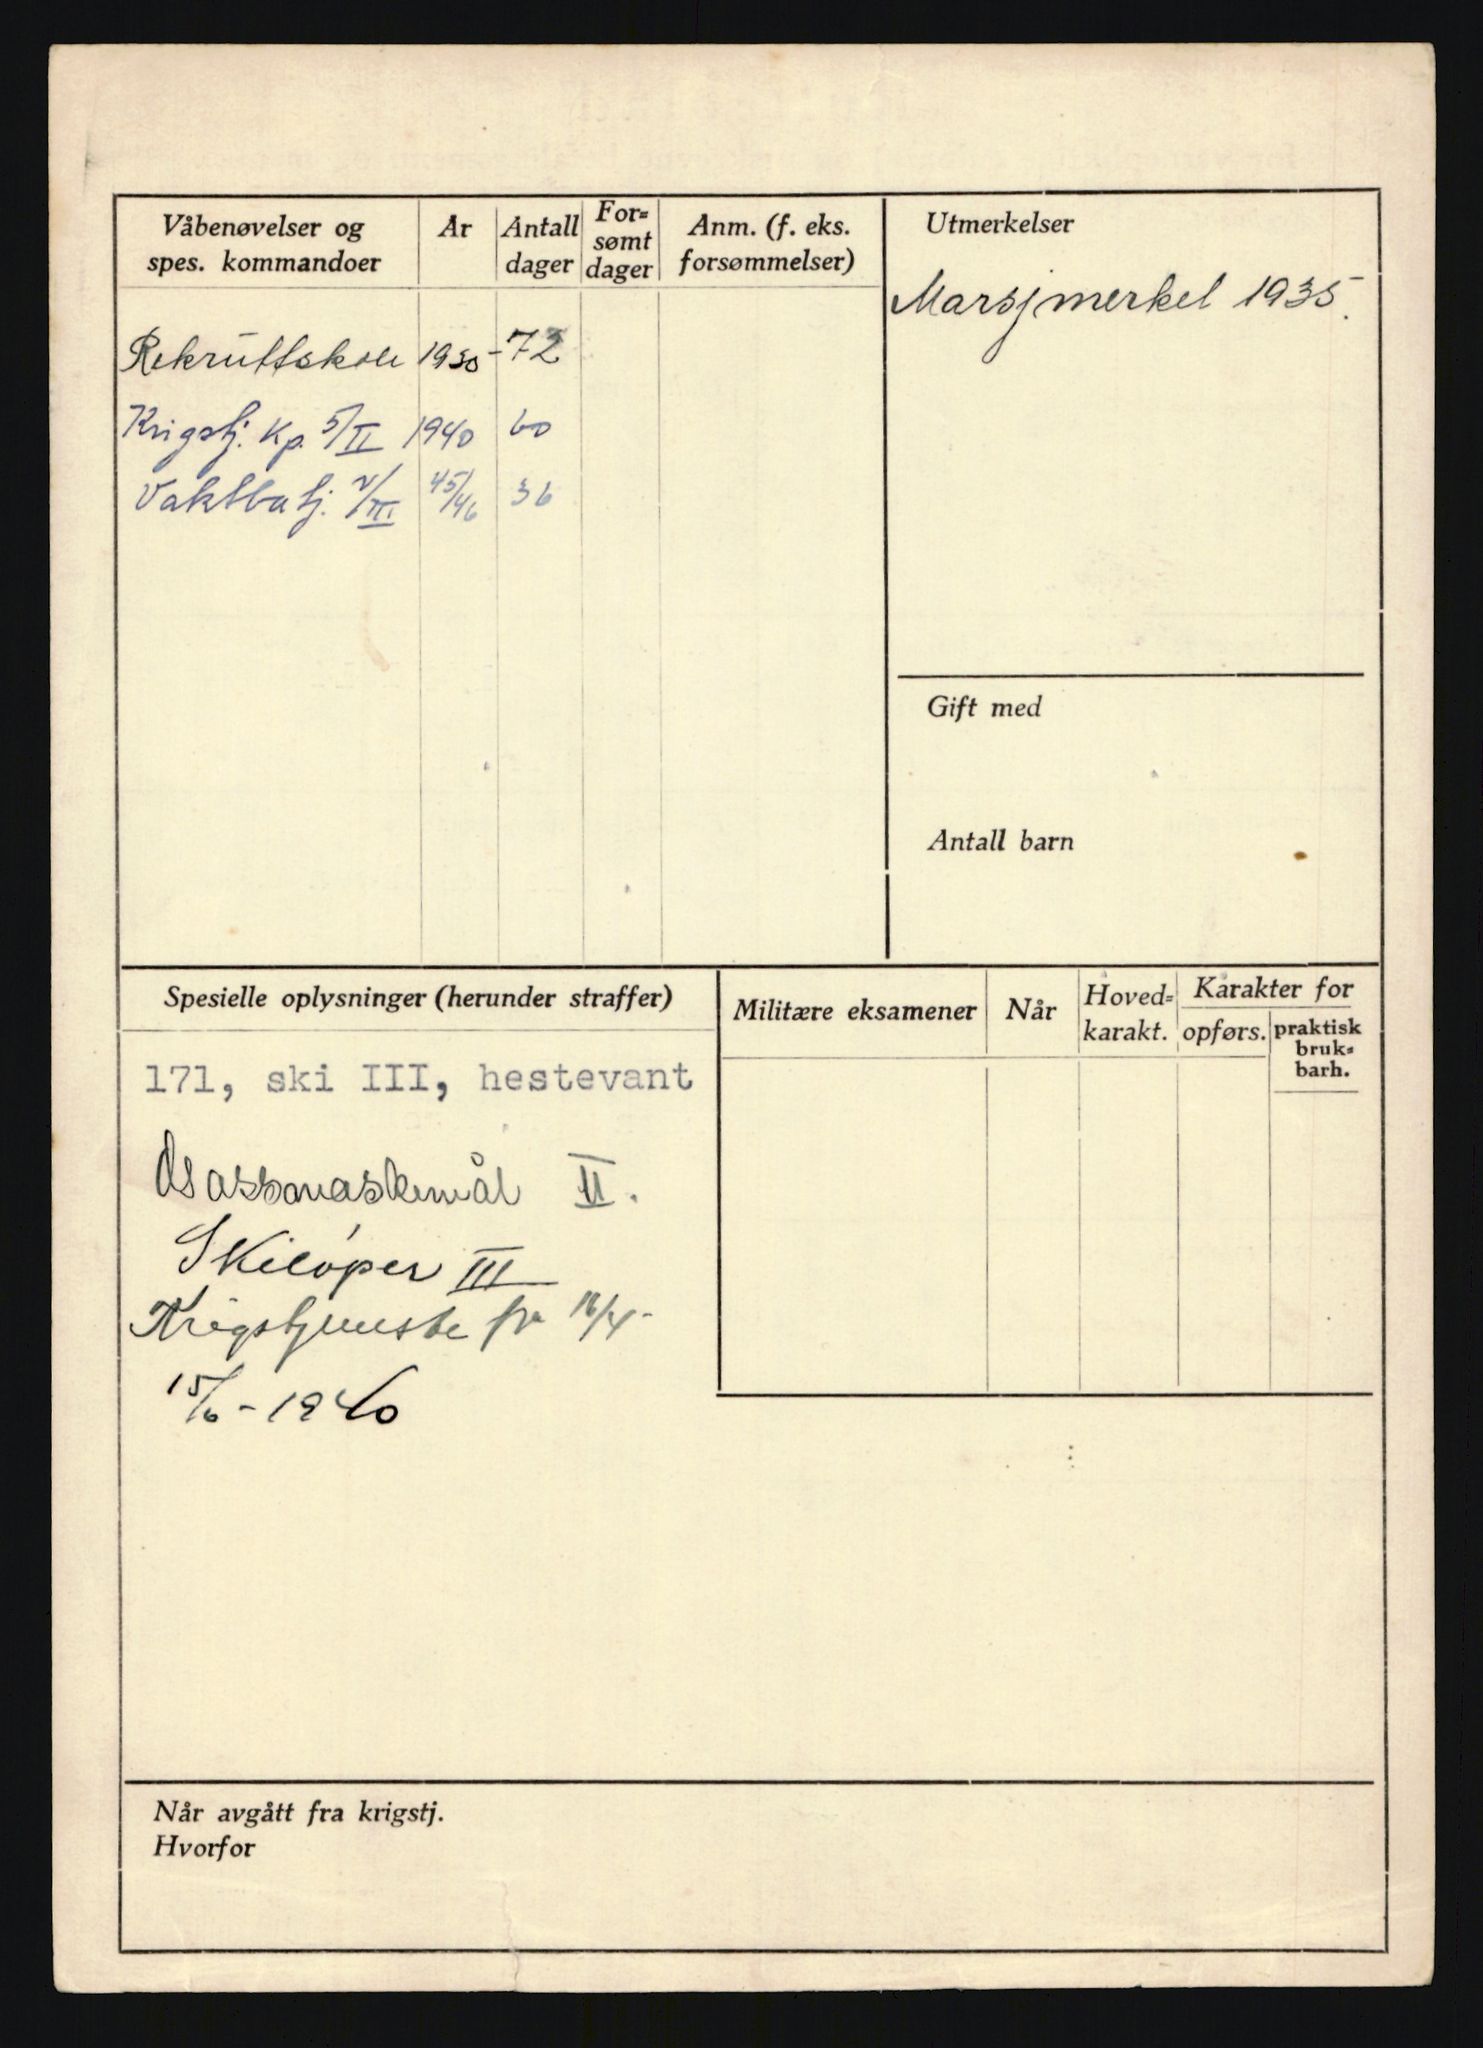 Våbenøvelser og
spes. kommandoer
År
Antall
dager
For=
sømt
dager
Anm. (f. eks.
forsømmelser)
Utmerkelser
Marsjmerket 1935.
Rekruttskole 1930 - 72
Krigstj. Kp. 5/II 1940 60
Vaktbatj. V/III 45/46 36
Gift med
Antall barn
Spesielle oplysninger (herunder straffer)
171, ski III, hestevant
Gassmaskemål II.
Skiløper III
Krigstjeneste fra 16/4-
15/6 - 1940
Militære eksamener
Når
Hoved=
karakt.
Karakter for
opførs.
praktisk
bruk=
barh.
Når avgått fra krigstj.
Hvorfor